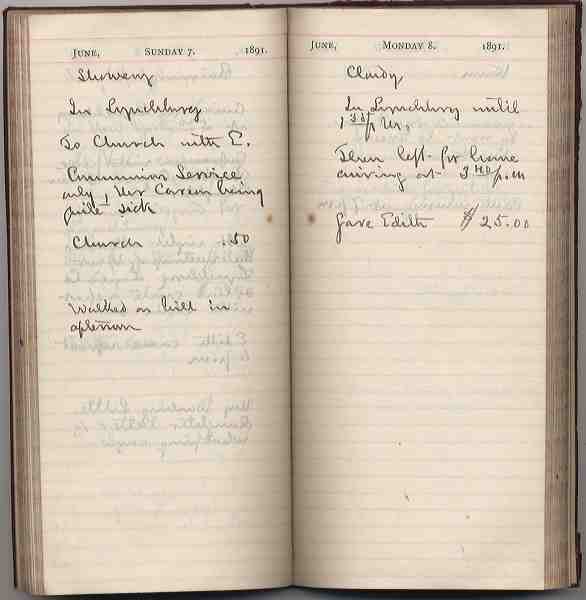 JUNE, SUNDAY 7. 1891.
Showery
In Lynchburg
To Church with E.
Communion Service
only, Mr Carson being
quite sick
Church .50
Walked on hill in
afternoon
JUNE, MONDAY 8. 1891.
Cloudy
In Lynchburg until
P.M.
Then left for home
arriving at 3 P.M
Gave Edith $25.00